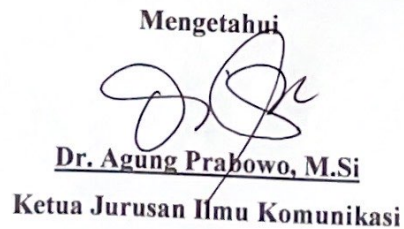 Mengetahui
Dr. Agung Prabowo, M.Si
Ketua Jurusan Ilmu Komunikasi